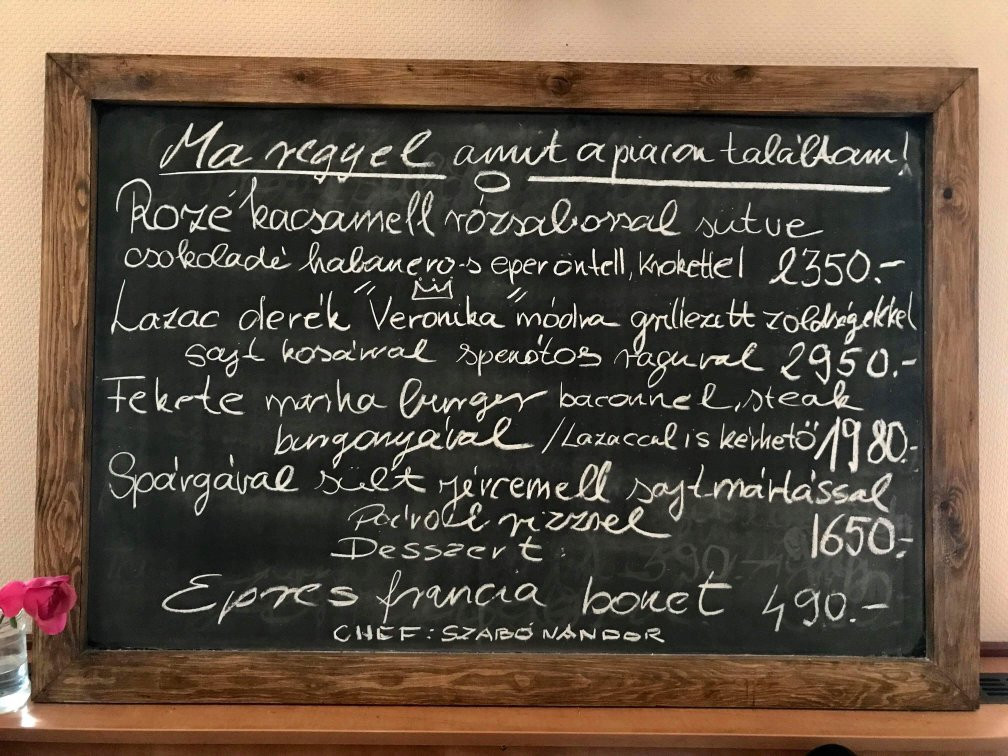 Ma reggel amit a piacon találtam!
Rozé kacsamell rózsaborssal sütve
csokoládé habanero-s eper öntell, krokettel 2350.-
Lazac derék "Veronika" módra grillezett zöldségekkel
sajt kosárral spenótos raguval 2950.-
Fekete marha burger baconnel, steak
burgonyával /Lazaccal is kérhető 1980.-
Spárgával sült jércemell sajtmártással
Párolt rizzsel 1650.-
Desszert:
Epres francia bonet 490.-
CHEF: SZABÓ NÁNDOR